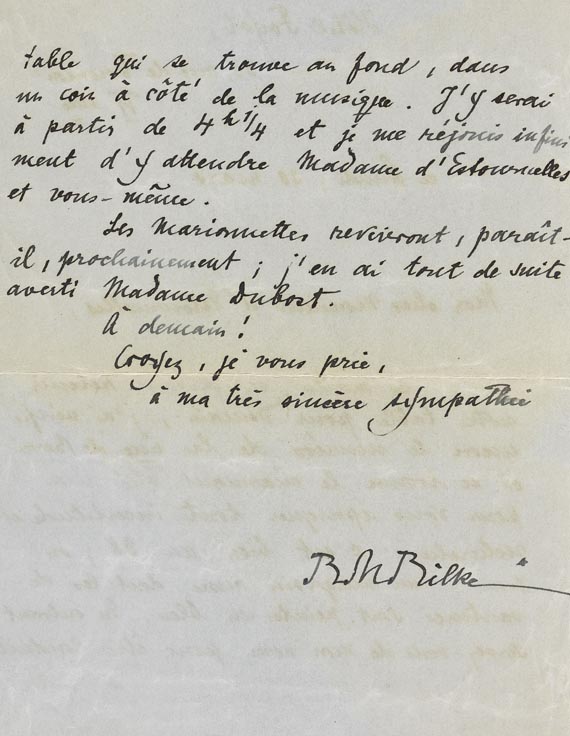 table qui se trouve au fond, dans
un coin à côté de la musique. J'y serai
à partir de 4 h 1/4 et je me réjouis infini
ment d'y attendre Madame d'Estournelles
et vous-même.
Les Marionnettes reviront, paraît-
il, prochainement ; j'en ai tout de suite
averti Madame Dubost.
À demain !
Croyez, je vous prie,
à ma très sincère sympathie
RMRilke